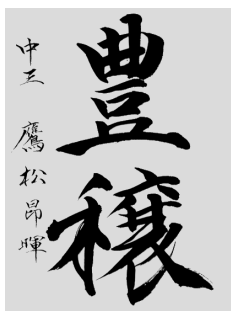 豊穣
中三 鷹松昂暉